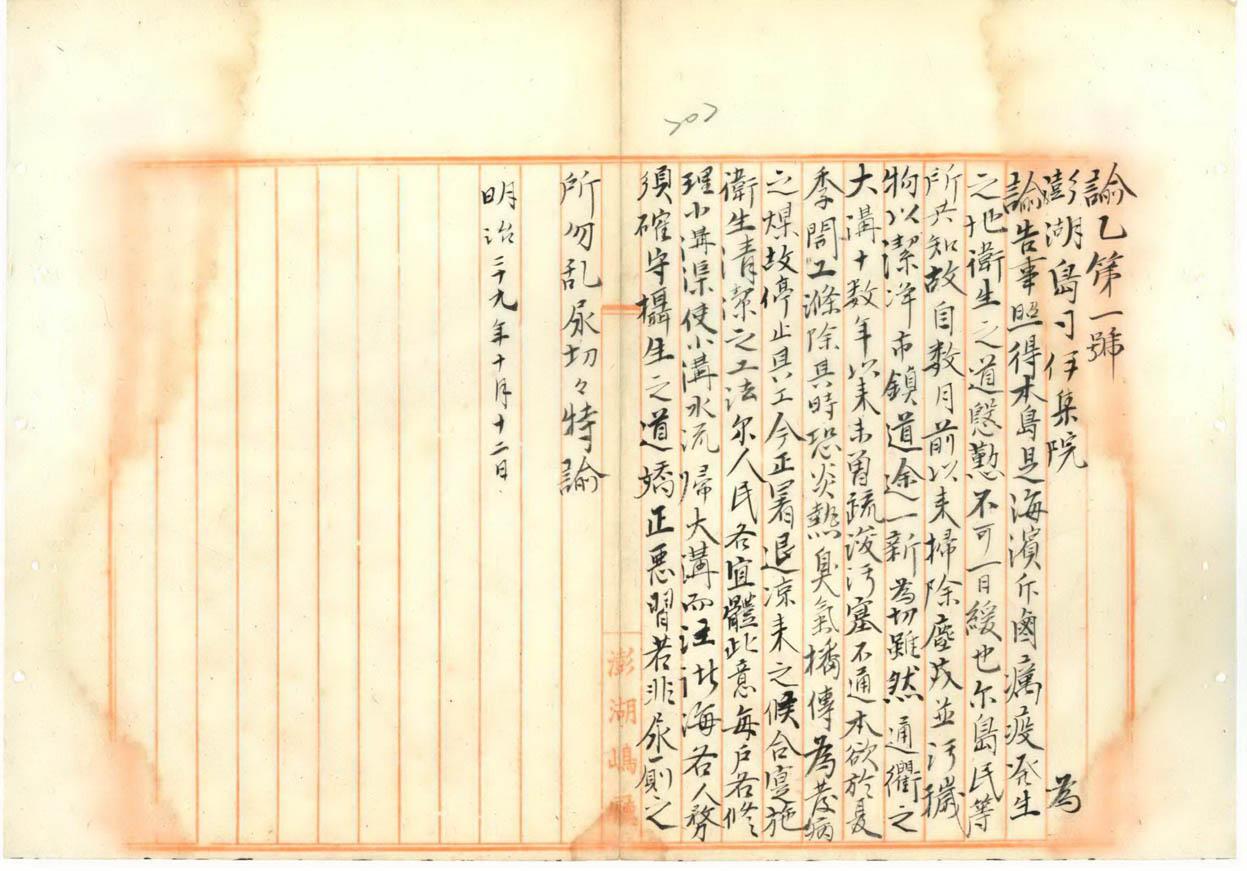 諭乙第一號
澎湖島司伊集院　為
諭告事照得本島是海濱斥鹵癘疫発生
之地衛生之道慇懃不可一日緩也尔島民等
所共知故自数月前以来掃除塵芥並汚穢
物以潔淨市鎮道途一新為切雖然通衢之
大溝十数年以来未曽疏浚汚塞不通本欲於夏
季開工滌除其時恐炎熱臭氣播傳為発病
之煤故停止其工今正暑退凉来之候合寔施
衛生清潔之工法尔人民各宜體此意毎戸各修
理小溝渠使小溝水流帰大溝而注諸海各人務
須確守攝生之道矯正悪習若非尿厠之
所勿乱尿切々特諭
明治二十九年十月十二日
澎湖嶋廳